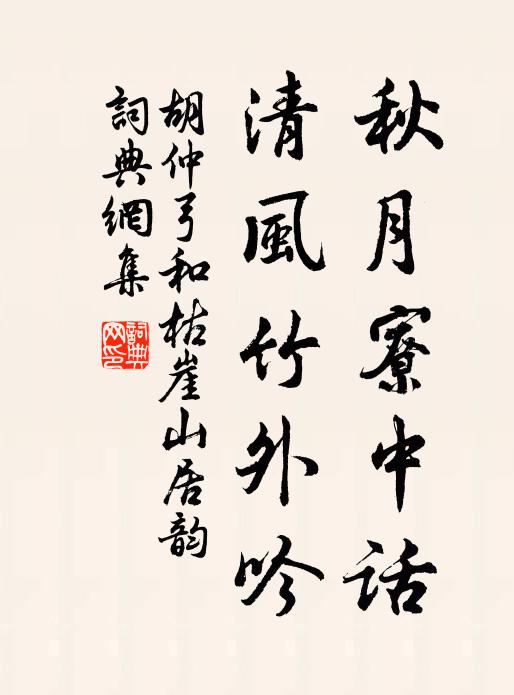 秋月寮中話
清風竹外吟
胡仲弓和枯崖山居韵
詞典網集
詞典網印